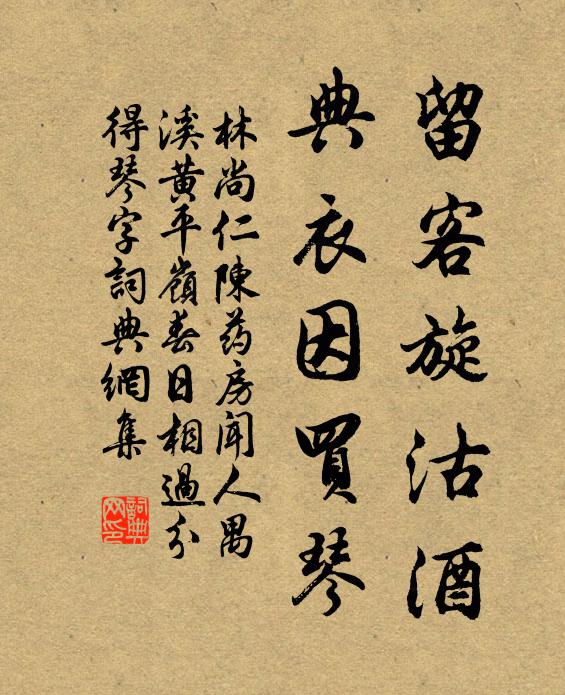 留客旋沽酒
典衣因買琴
林尚仁陳药房聞人禺
溪黄平嶺春日相過分
得琴字詞典網集
詞典网印